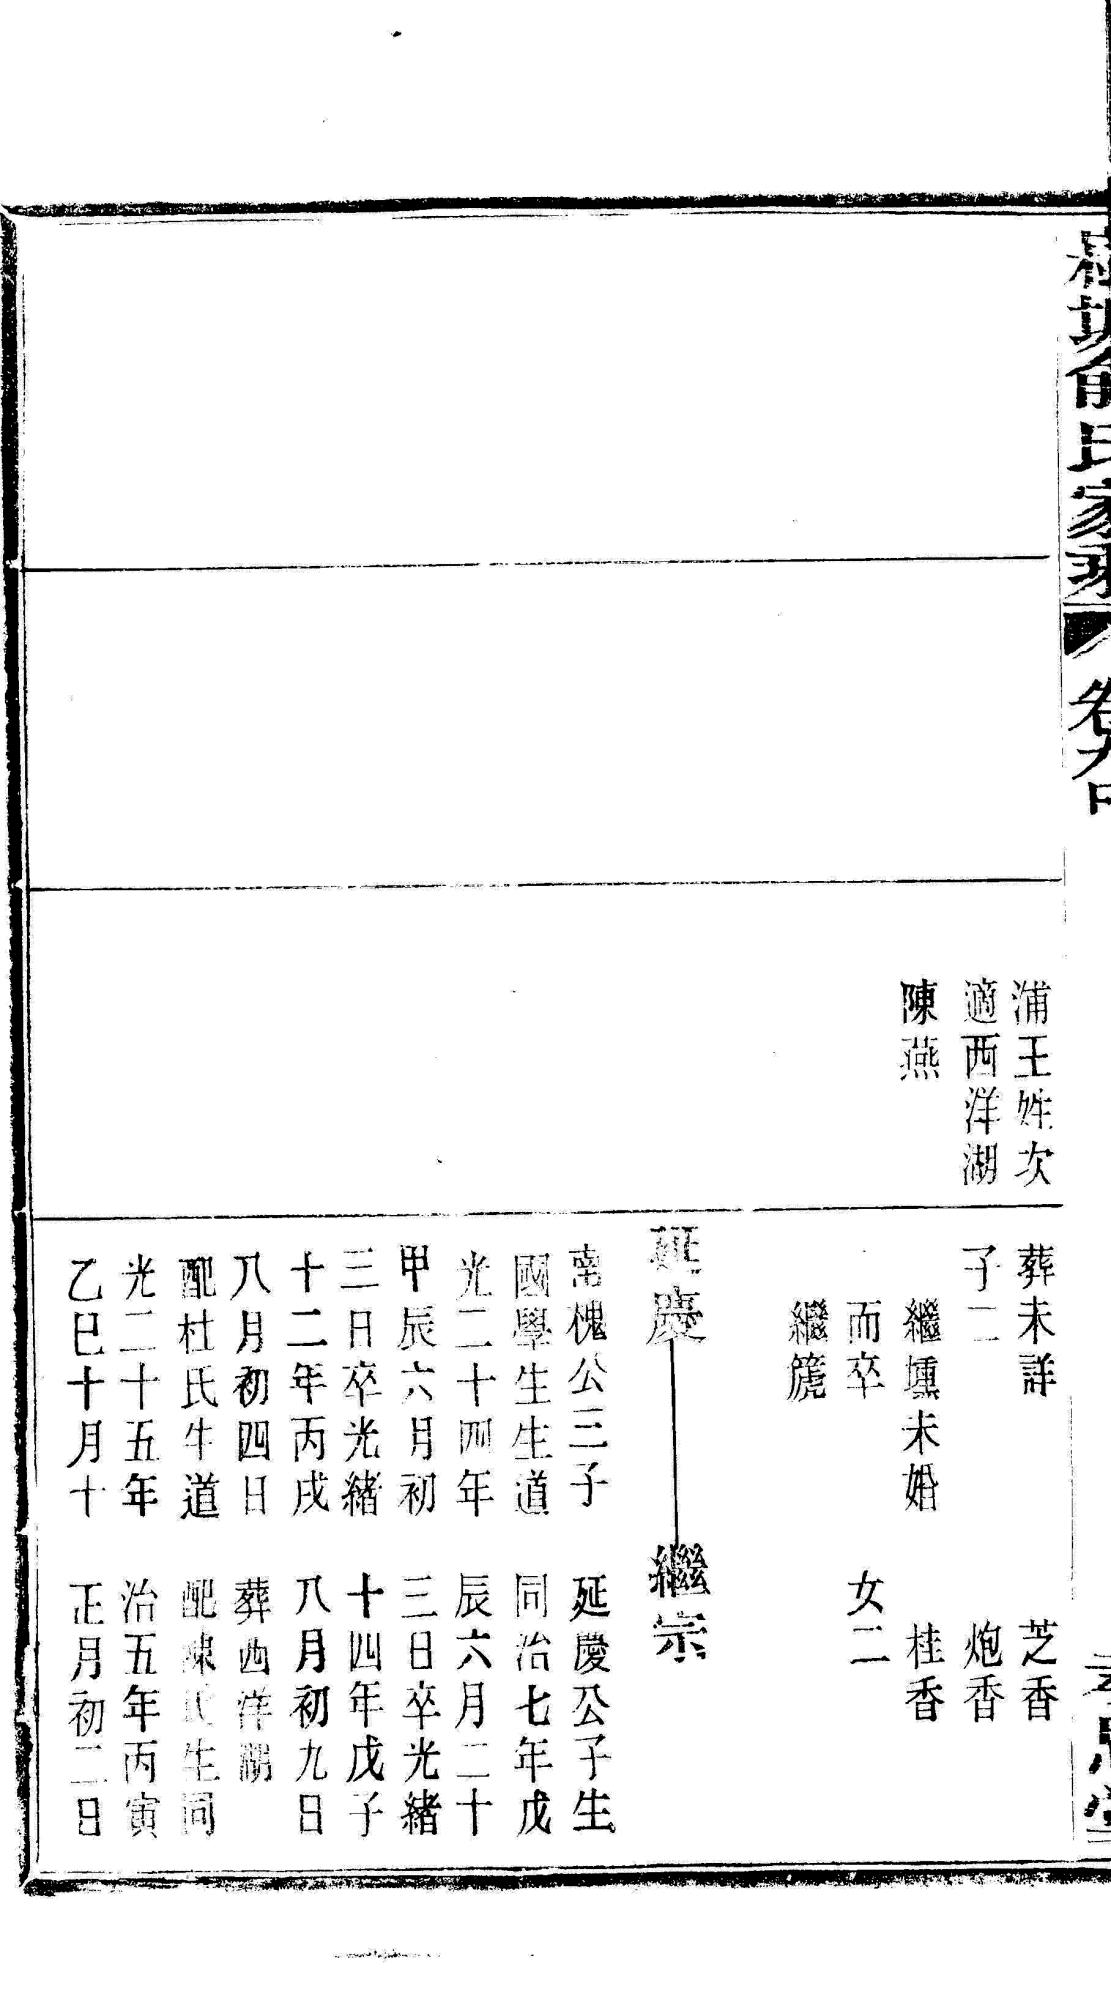 氏家
卷九
浦王姓次
適西洋湖
陳燕
葬未詳
子二
繼壎未婚
而卒
繼篪
芝香
炮香
桂香
女二
延慶
繼宗
南槐公三子
國學生生道
光二十四年
甲辰六月初
三日卒光緒
十二年丙戌
八月初四日
配杜氏生道
光二十五年
乙巳十月十
延慶公子生
同治七年戊
辰六月二十
三日卒光緒
十四年戊子
八月初九日
葬西洋湖
配陳氏生同
治五年丙寅
正月初二日